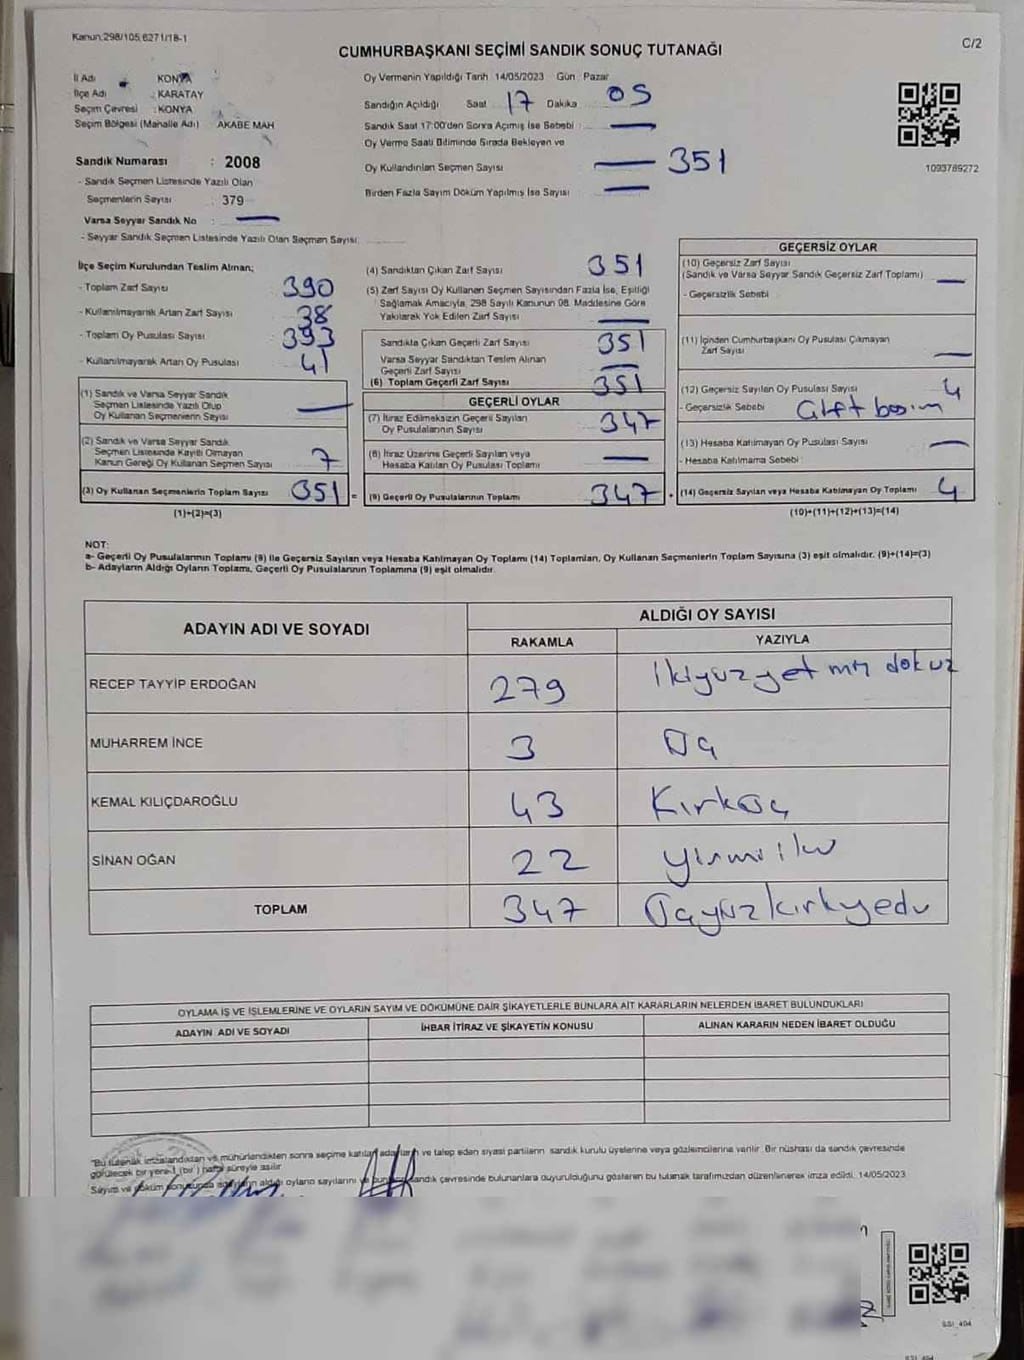 Kanun:298/105,6271/18-1
C/2
CUMHURBAŞKANI SEÇİMİ SANDIK SONUÇ TUTANAĞI
İl Adı : KONYA
İlçe Adı : KARATAY
Seçim Çevresi : KONYA
Seçim Bölgesi (Mahalle Adı) AKABE MAH
Sandık Numarası : 2008
- Sandık Seçmen Listesinde Yazılı Olan
Seçmenlerin Sayısı : 379
Varsa Seyyar Sandık No :
- Seyyar Sandık Seçmen Listesinde Yazılı Olan Seçmen Sayısı:
Oy Vermenin Yapıldığı Tarih 14/05/2023 Gün : Pazar
Sandığın Açıldığı Saat 17 Dakika 05
Sandık Saat 17:00'den Sonra Açımış İse Sebebi : —
Oy Verme Saati Bitiminde Sırada Bekleyen ve
Oy Kullandırılan Seçmen Sayısı — 351
Birden Fazla Sayım Döküm Yapılmış İse Sayısı : —
1093789272
İlçe Seçim Kurulundan Teslim Alınan;
- Toplam Zarf Sayısı 390
- Kullanılmayarak Artan Zarf Sayısı 38
- Toplam Oy Pusulası Sayısı 393
- Kullanılmayarak Artan Oy Pusulası 41
(1) Sandık ve Varsa Seyyar Sandık
Seçmen Listesinde Yazılı Olup
Oy Kullanan Seçmenlerin Sayısı —
(2) Sandık ve Varsa Seyyar Sandık
Seçmen Listesinde Kayıtlı Olmayan
Kanun Gereği Oy Kullanan Seçmen Sayısı 7
(3) Oy Kullanan Seçmenlerin Toplam Sayısı 351
(1)+(2)=(3)
(4) Sandıktan Çıkan Zarf Sayısı 351
(5) Zarf Sayısı Oy Kullanan Seçmen Sayısından Fazla İse, Eşitliği
Sağlamak Amacıyla, 298 Sayılı Kanunun 98. Maddesine Göre
Yakılarak Yok Edilen Zarf Sayısı —
Sandıkta Çıkan Geçerli Zarf Sayısı 351
Varsa Seyyar Sandıktan Teslim Alınan
Geçerli Zarf Sayısı —
(6) Toplam Geçerli Zarf Sayısı 351
GEÇERLİ OYLAR
(7) İtiraz Edilmeksizin Geçerli Sayılan
Oy Pusulalarının Sayısı 347
(8) İtiraz Üzerine Geçerli Sayılan veya
Hesaba Katılan Oy Pusulası Toplamı —
(9) Geçerli Oy Pusulalarının Toplamı 347
GEÇERSİZ OYLAR
(10) Geçersiz Zarf Sayısı
(Sandık ve Varsa Seyyar Sandık Geçersiz Zarf Toplamı) —
- Geçersizlik Sebebi
(11) İçinden Cumhurbaşkanı Oy Pusulası Çıkmayan
Zarf Sayısı —
(12) Geçersiz Sayılan Oy Pusulası Sayısı 4
- Geçersizlik Sebebi Çift basım
(13) Hesaba Katılmayan Oy Pusulası Sayısı —
- Hesaba Katılmama Sebebi :
(14) Geçersiz Sayılan veya Hesaba Katılmayan Oy Toplamı 4
(10)+(11)+(12)+(13)=(14)
NOT:
a- Geçerli Oy Pusulalarının Toplamı (9) ile Geçersiz Sayılan veya Hesaba Katılmayan Oy Toplamı (14) Toplamları, Oy Kullanan Seçmenlerin Toplam Sayısına (3) eşit olmalıdır. (9)+(14)=(3)
b- Adayların Aldığı Oyların Toplamı, Geçerli Oy Pusulalarının Toplamına (9) eşit olmalıdır.
ADAYIN ADI VE SOYADI
ALDIĞI OY SAYISI
RAKAMLA YAZIYLA
RECEP TAYYİP ERDOĞAN 279 İkiyüzyetmiş dokuz
MUHARREM İNCE 3 Üç
KEMAL KILIÇDAROĞLU 43 Kırküç
SİNAN OĞAN 22 yirmi iki
TOPLAM 347 Üçyüzkırkyedi
OYLAMA İŞ VE İŞLEMLERİNE VE OYLARIN SAYIM VE DÖKÜMÜNE DAİR ŞİKAYETLERLE BUNLARA AİT KARARLARIN NELERDEN İBARET BULUNDUKLARI
ADAYIN ADI VE SOYADI İHBAR İTİRAZ VE ŞİKAYETİN KONUSU ALINAN KARARIN NEDEN İBARET OLDUĞU
"Bu tutanak imzalandıktan ve mühürlendikten sonra seçime katılan adayların ve talep eden siyasi partilerin sandık kurulu üyelerine veya gözlemcilerine verilir. Bir nüshası da sandık çevresinde
görülecek bir yere 1 (bir) hafta süreyle asılır.
Sayım ve döküm sonucunda adayların aldığı oyların sayılarını ve bunların sandık çevresinde bulunanlara duyurulduğunu gösteren bu tutanak tarafımızdan düzenlenerek imza edildi. 14/05/2023
SSI_494